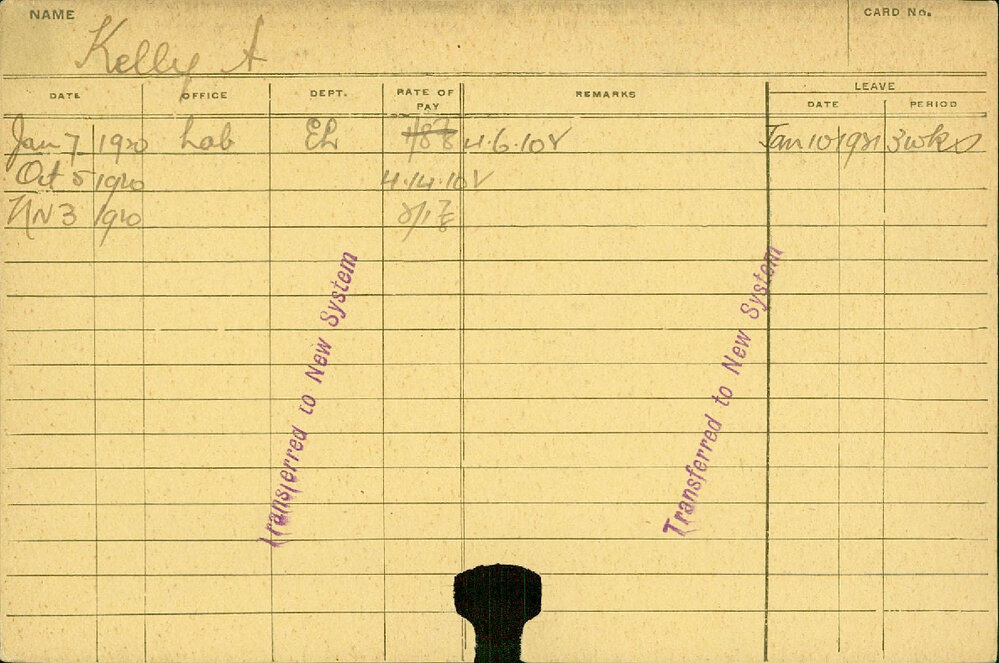 NAME CARD No.
Kelly A
DATE OFFICE DEPT. RATE OF PAY REMARKS LEAVE
DATE PERIOD
Jan 7 1920 Lab 4.6.10 Jan 10 1921 3 wks
Oct 5 1920 4.14.10
3 1920
Transferred to New System
Transferred to New System